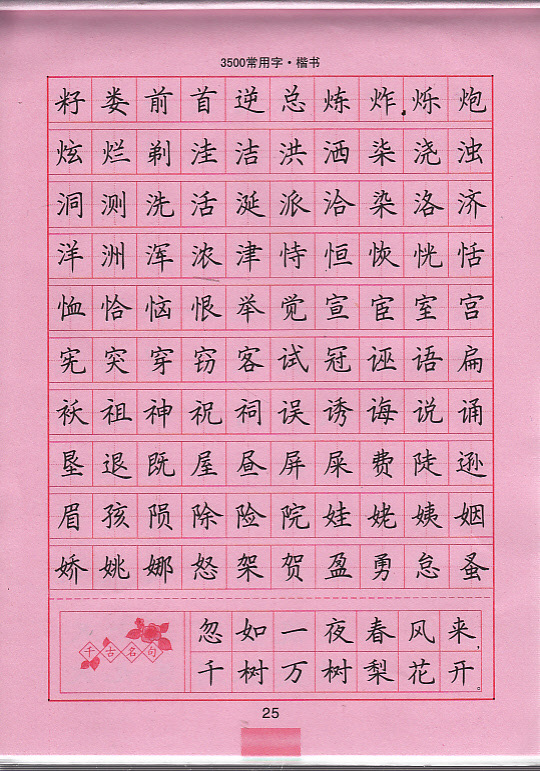 3500常用字·楷书
籽娄前首逆总炼炸烁炮
炫烂剃洼洁洪洒柒浇浊
洞测洗活涎派洽染洛济
洋洲浑浓津恃恒恢恍恬
恤恰恼恨举觉宣宦室宫
宪突穿窃客试冠诬语扁
袄祖神祝祠误诱诲说诵
垦退既屋昼屏屎费陡逊
眉孩陨除险院娃姥姨姻
娇姚娜怒架贺盈勇怠蚤
千古名句
忽如一夜春风来,
千树万树梨花开。
25